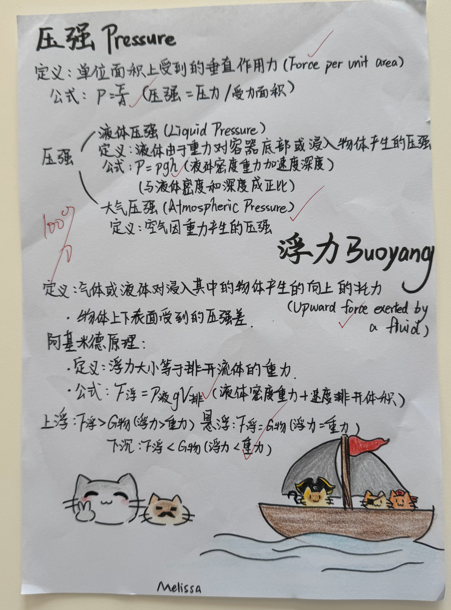 压强 Pressure
定义：单位面积上受到的垂直作用力 (Force per unit area)
公式：P=F/S (压强=压力/受力面积)
液体压强 (Liquid Pressure)
定义：液体由于重力对容器底部或浸入物体产生的压强
压强
公式：P=ρgh (液体密度重力加速度深度)
(与液体密度和深度成正比)
大气压强 (Atmospheric Pressure)
定义：空气因重力产生的压强
100分
浮力 Buoyang
定义：气体或液体对浸入其中的物体产生的向上的托力
(Upward force exerted by
a fluid)
·物体上下表面受到的压强差.
阿基米德原理：
·定义：浮力大小等于排开流体的重力.
·公式：F浮=ρ液gV排 (液体密度重力+速度排开体积)
上浮：F浮>G物 (浮力>重力) 悬浮：F浮=G物 (浮力=重力)
下沉：F浮<G物 (浮力<重力)
Melissa